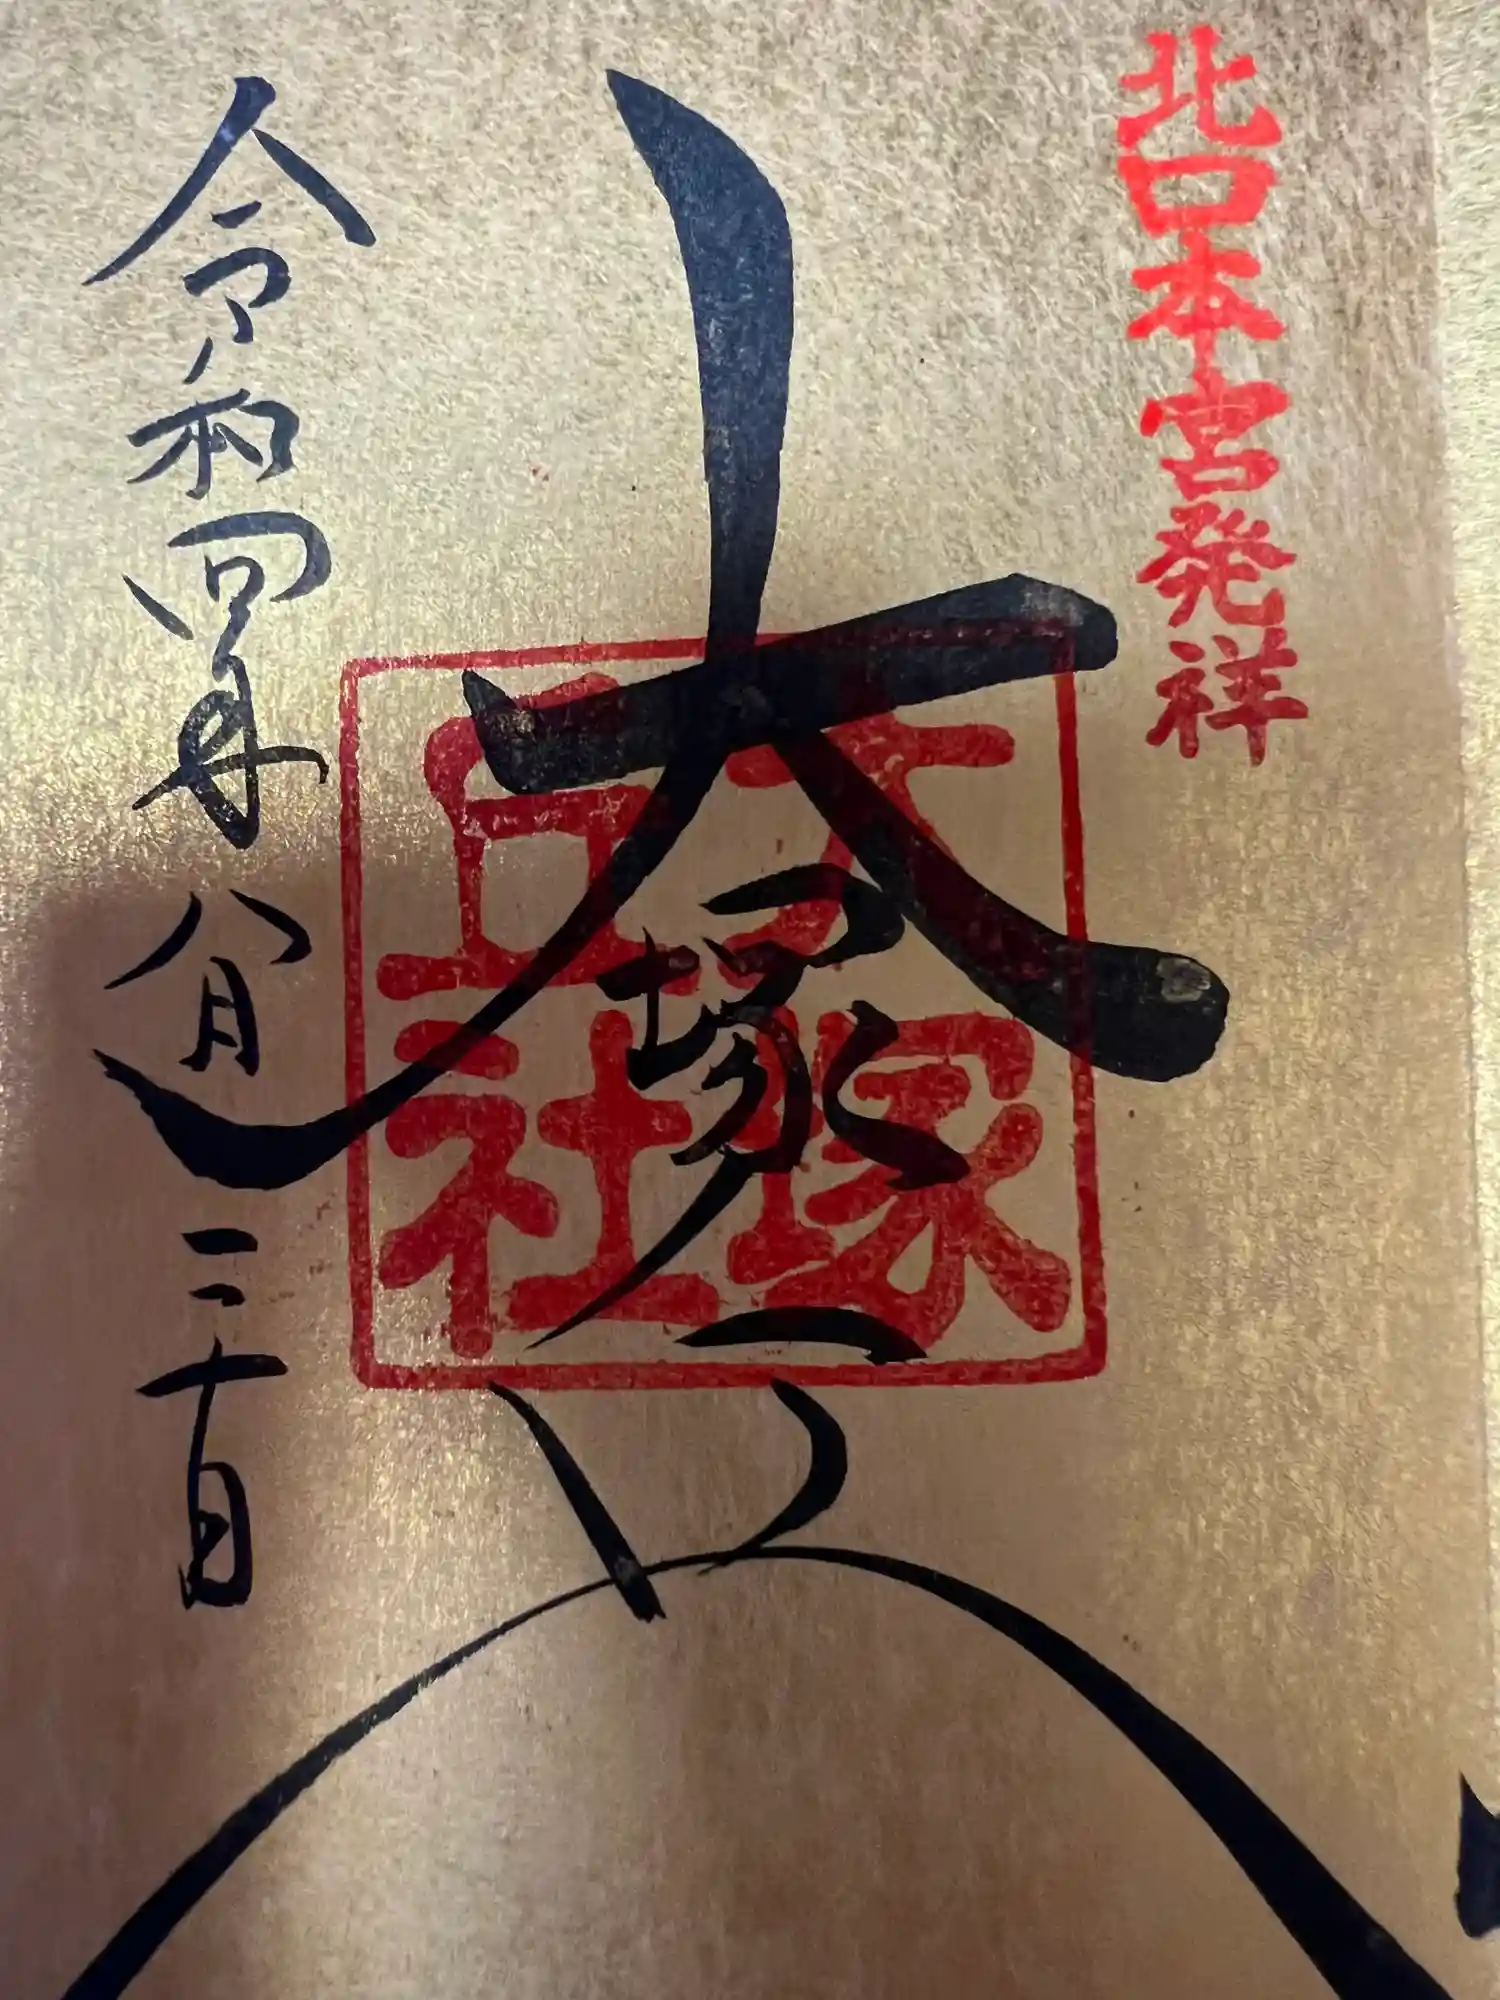 北口本宮発祥
大塚丘
大塚
丘社
令和四年八月二十日